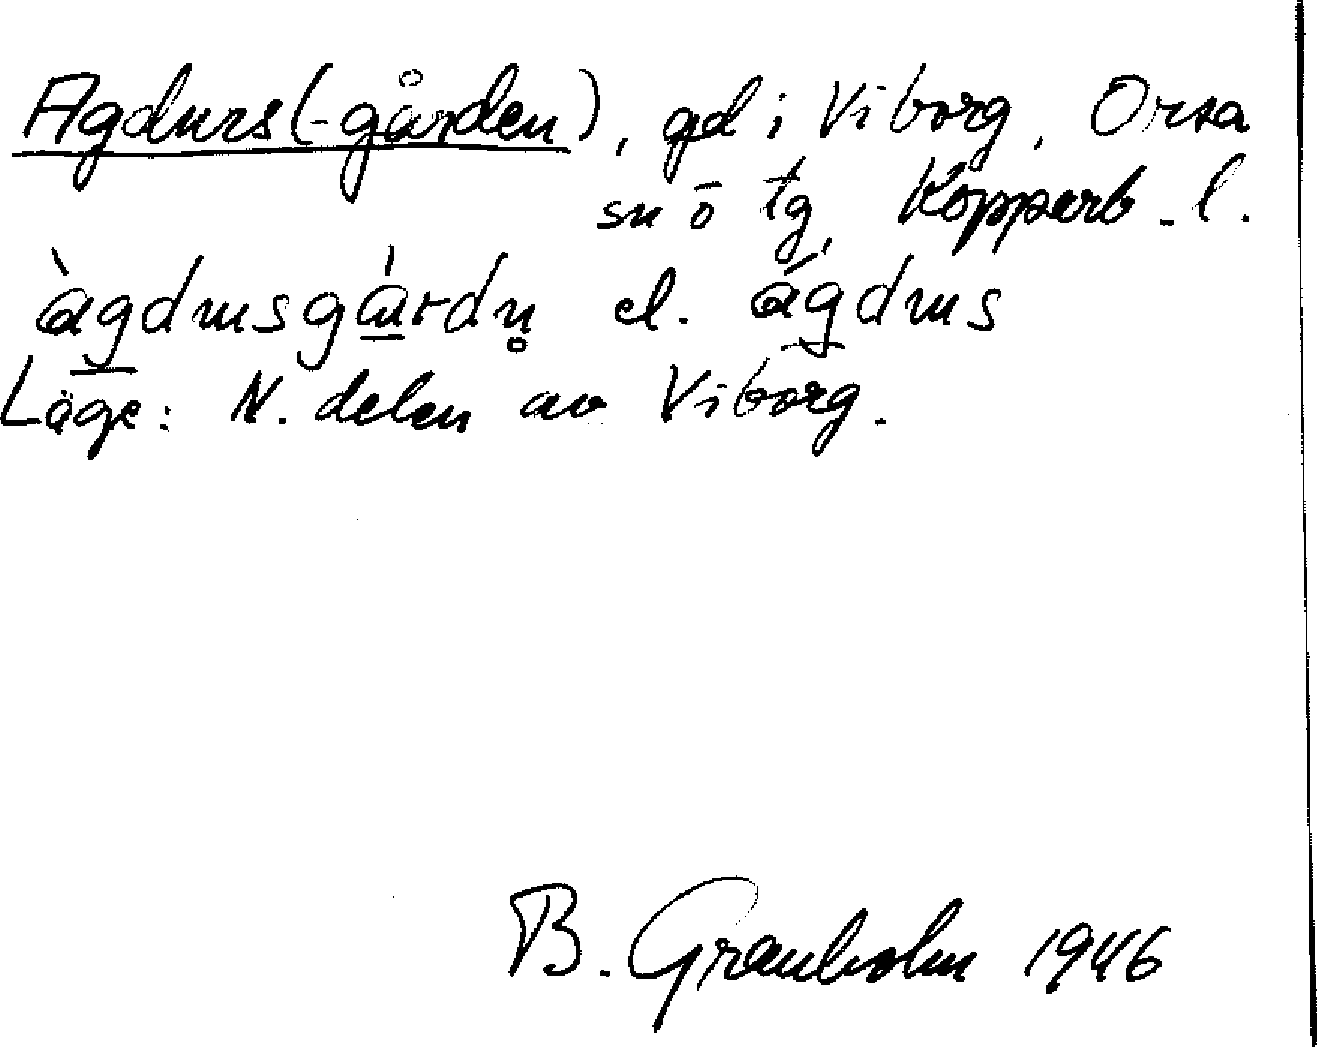 Agdurs(-gården), gd i Viborg, Orsa
sn o tg, Kopparb. l.
àgdusgárdn̥ el. ágdus
Läge: N. delen av Viborg.
B. Granholm 1946